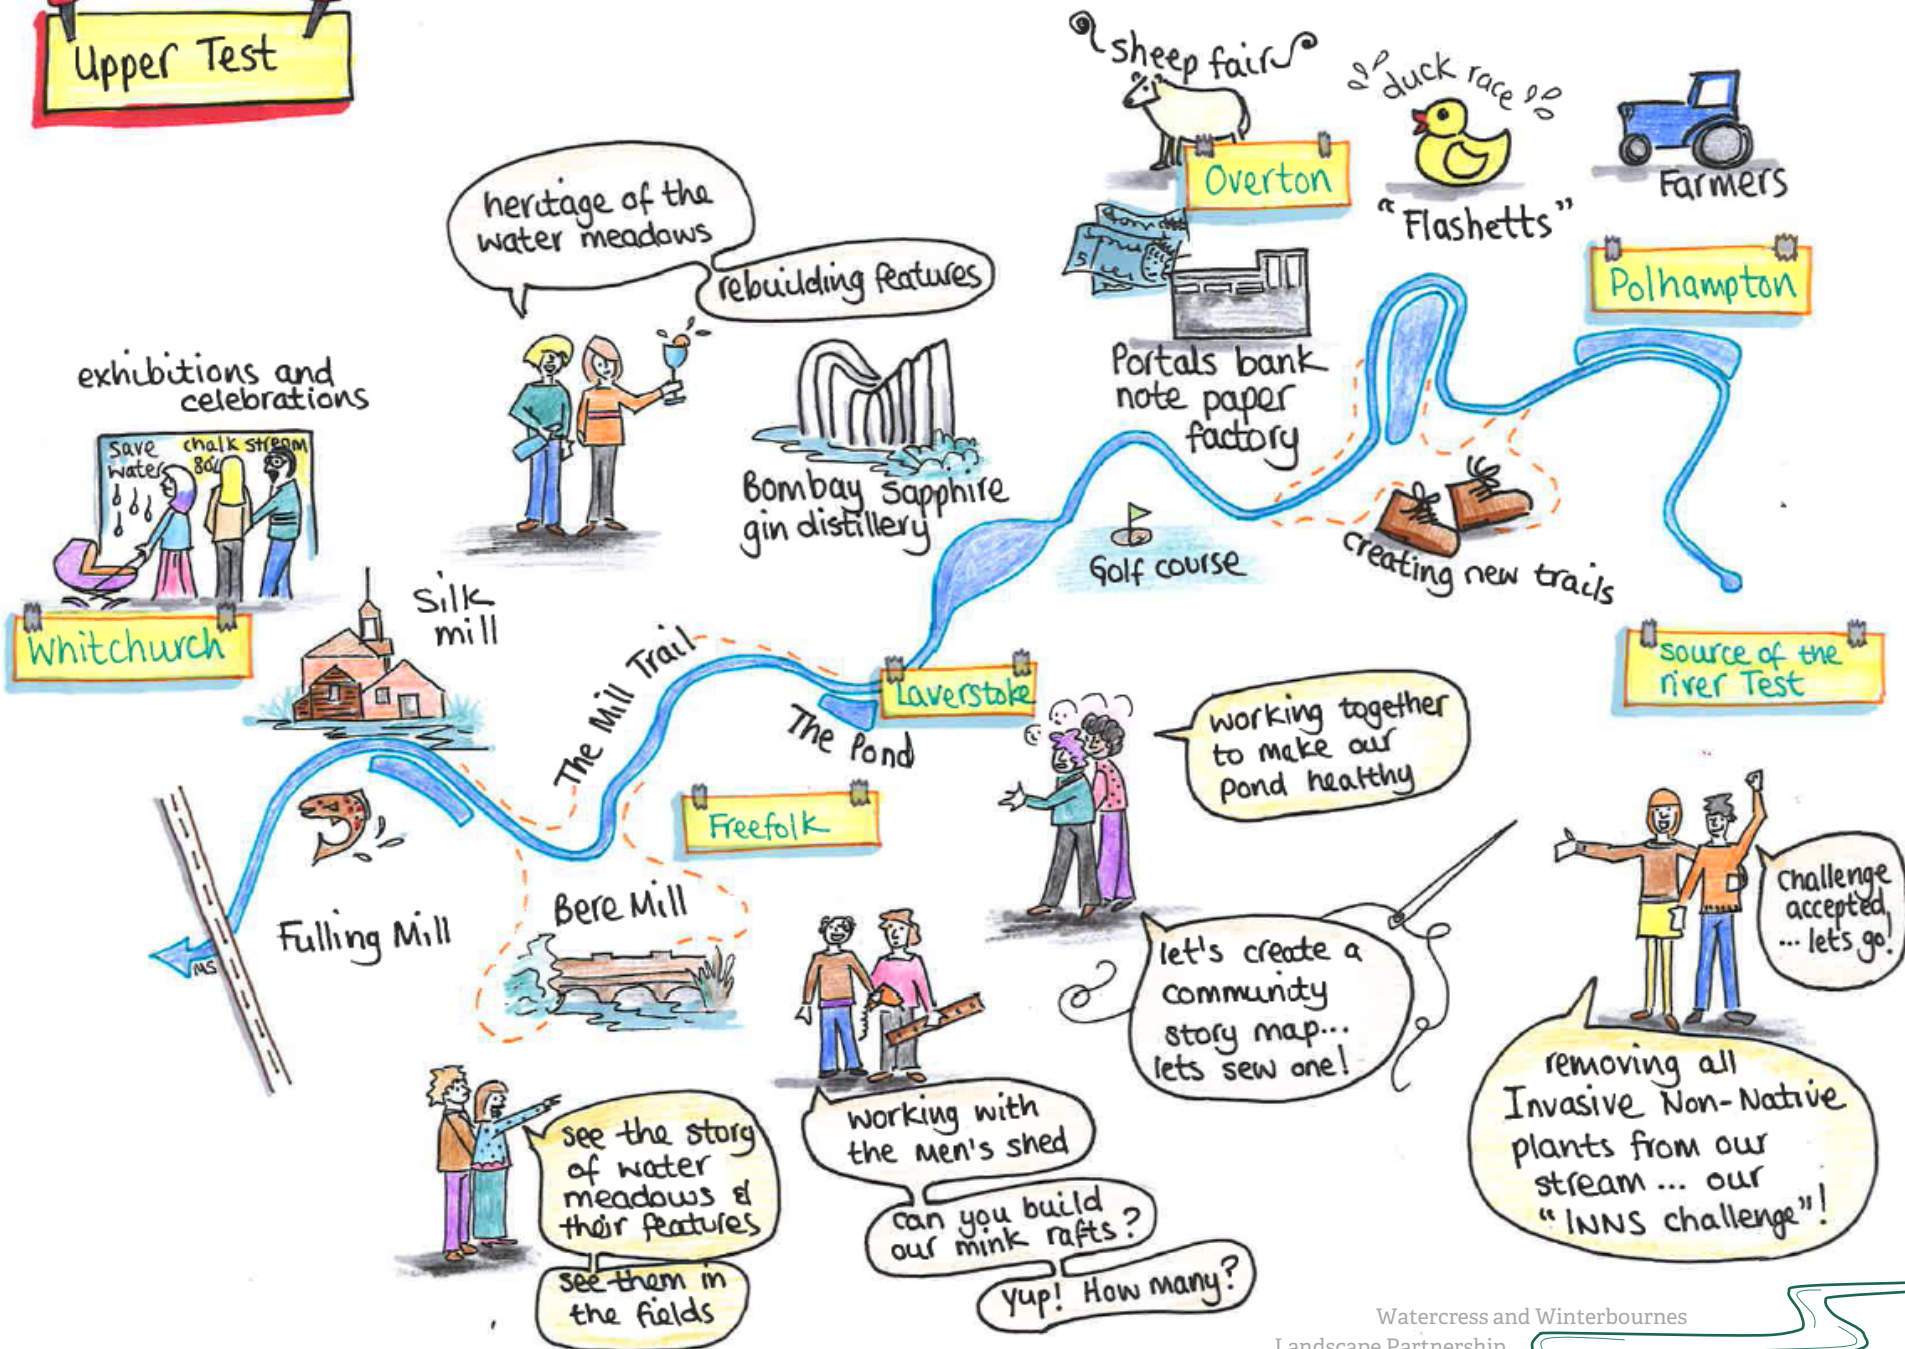 Upper Test
sheep fair
duck race
Overton
"Flashetts"
Farmers
Polhampton
5
Portals bank
note paper
factory
heritage of the
water meadows
rebuilding features
exhibitions and
celebrations
save
water
chalk stream
Bombay Sapphire
gin distillery
Golf course
creating new trails
Whitchurch
Silk
mill
The Mill Trail
Laverstoke
The Pond
source of the
river Test
working together
to make our
pond healthy
Freefolk
Fulling Mill
Bere Mill
MS
challenge
accepted
... lets go!
let's create a
community
story map...
lets sew one!
removing all
Invasive Non-Native
plants from our
stream ... our
"INNS challenge"!
see the story
of water
meadows &
their features
see them in
the fields
working with
the men's shed
can you build
our mink rafts?
yup! How many?
Watercress and Winterbournes
Landscape Partnership